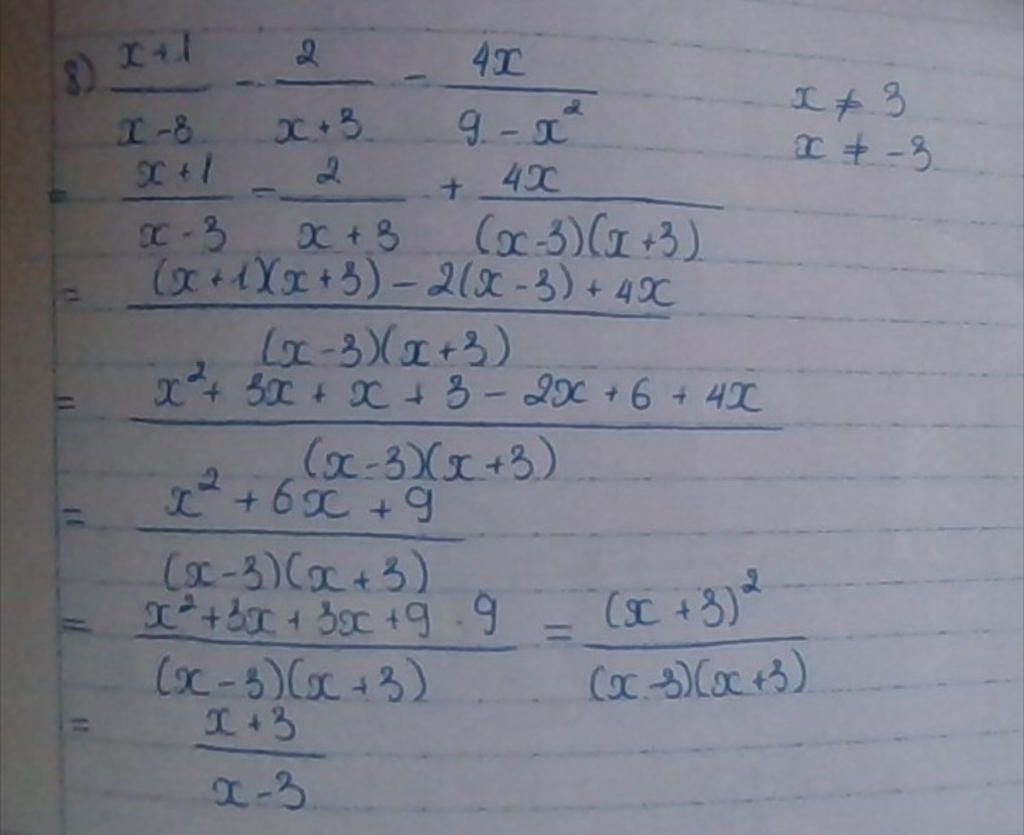 8) (x+1)/(x-3) - 2/(x+3) - 4x/(9-x²)
x ≠ 3
x ≠ -3
= (x+1)/(x-3) - 2/(x+3) + 4x/((x-3)(x+3))
= ((x+1)(x+3) - 2(x-3) + 4x)/((x-3)(x+3))
= (x² + 3x + x + 3 - 2x + 6 + 4x)/((x-3)(x+3))
= (x² + 6x + 9)/((x-3)(x+3))
= (x² + 3x + 3x + 9 · 9)/((x-3)(x+3)) = (x+3)²/((x-3)(x+3))
= (x+3)/(x-3)